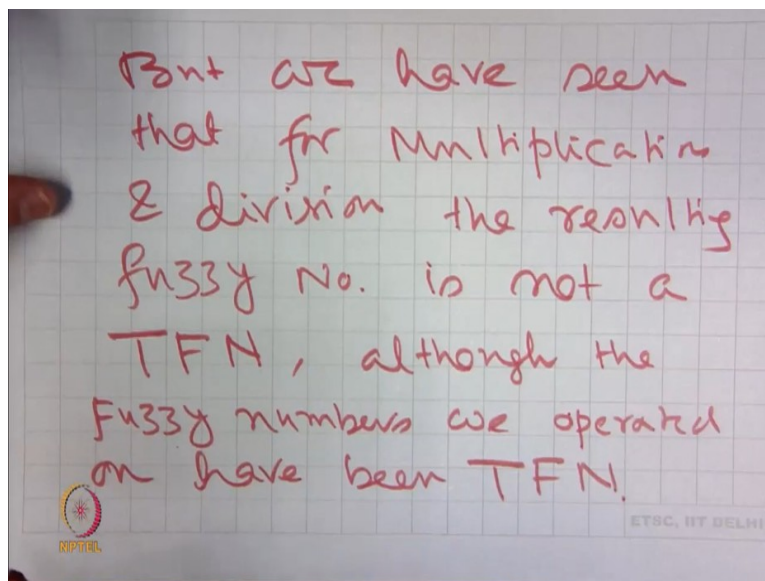 But we have seen
that for Multiplication
& division the resulting
fuzzy No. is not a
TFN, although the
Fuzzy numbers we operated
on have been TFN.
ETSC, IIT DELHI
NPTEL